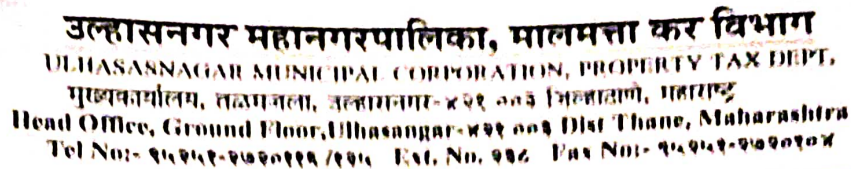 उल्हासनगर महानगरपालिका, मालमत्ता कर विभाग
ULHASASNAGAR MUNICIPAL CORPORATION, PROPERTY TAX DEPT,
मुख्यकार्यालय, तळमजला, उल्हासनगर-४२१ ००३ जिल्हाठाणे, महाराष्ट्र
Head Office, Ground Floor,Ulhasangar-४२१ ००३ Dist Thane, Maharashtra
Tel No:- Ext. No. Fax No:-